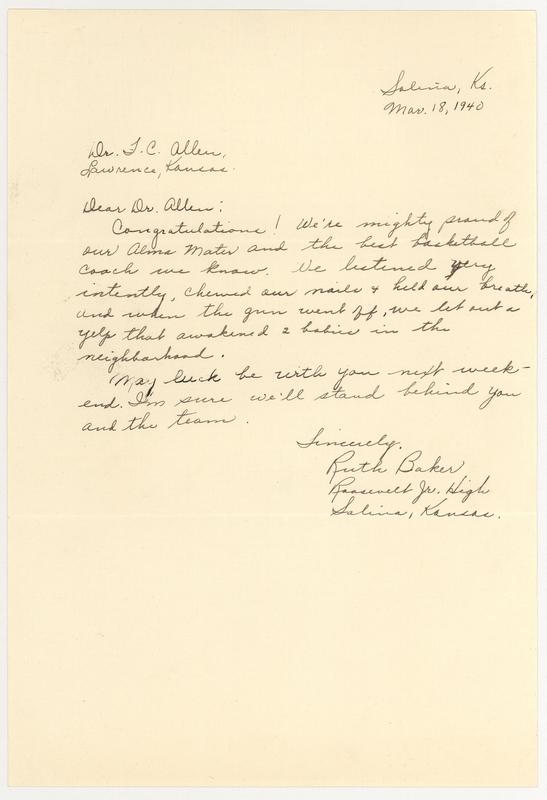 Salina, Ks.
Mar. 18, 1940
Dr. F. C. Allen,
Lawrence, Kansas.
Dear Dr. Allen:
Congratulations! We're mighty proud of
our Alma Mater and the best basketball
coach we know. We listened very
intently, chewed our nails & held our breath,
and when the gun went off, we let out a
yelp that awakened 2 babies in the
neighborhood.
May luck be with you next week-
end. I'm sure we'll stand behind you
and the team.
Sincerely,
Ruth Baker
Roosevelt Jr. High
Salina, Kansas.